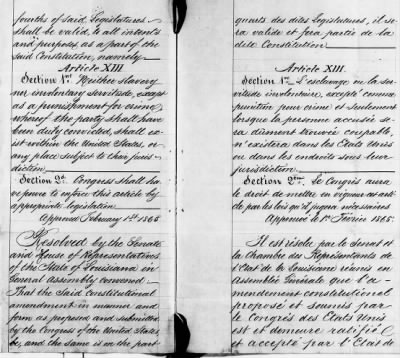 fourths of said Legislatures
shall be valid, to all intents
and purposes, as a part of the
said Constitution, namely
Article XIII
Section 1st Neither slavery
nor involuntary servitude, except
as a punishment for crime,
whereof the party shall have
been duly convicted, shall ex-
ist within the United States, or
any place subject to their juris-
diction.
Section 2d. Congress shall ha-
ve power to enforce this article by
appropriate legislation
Approved February 1st 1865
Resolved by the Senate
and House of Representatives
of the State of Louisiana in
General Assembly convened
That the said Constitutional
amendment in manner and
form as proposed and submitted
by the Congress of the United States,
be, and the same is on the part
quarts des dites Législatures, il se-
ra valide et fera partie de la
dite Constitution
Article XIII.
Section 1re L'esclavage ou la ser-
vitude involontaire, excepté comme
punition pour crime et seulement
lorsque la personne accusée se-
ra dûment trouvée coupable,
n'existera dans les Etats Unis
ou dans les endroits sous leur
jurisdiction.
Section 2me. Le Congrès aura
le droit de mettre en vigueur cet arti-
cle par les lois qu'il jugera nécessaires
Approuvé le 1er Février 1865.
Il est résolu par le Sénat et
la Chambre des Représentants de
l'Etat de la Louisiane réunis en
Assemblée Générale que l'a-
mendement constitutionnel
proposé et soumis par
le Congrès des Etats Unis
est et demeure ratifié
et accepté par l'Etat de